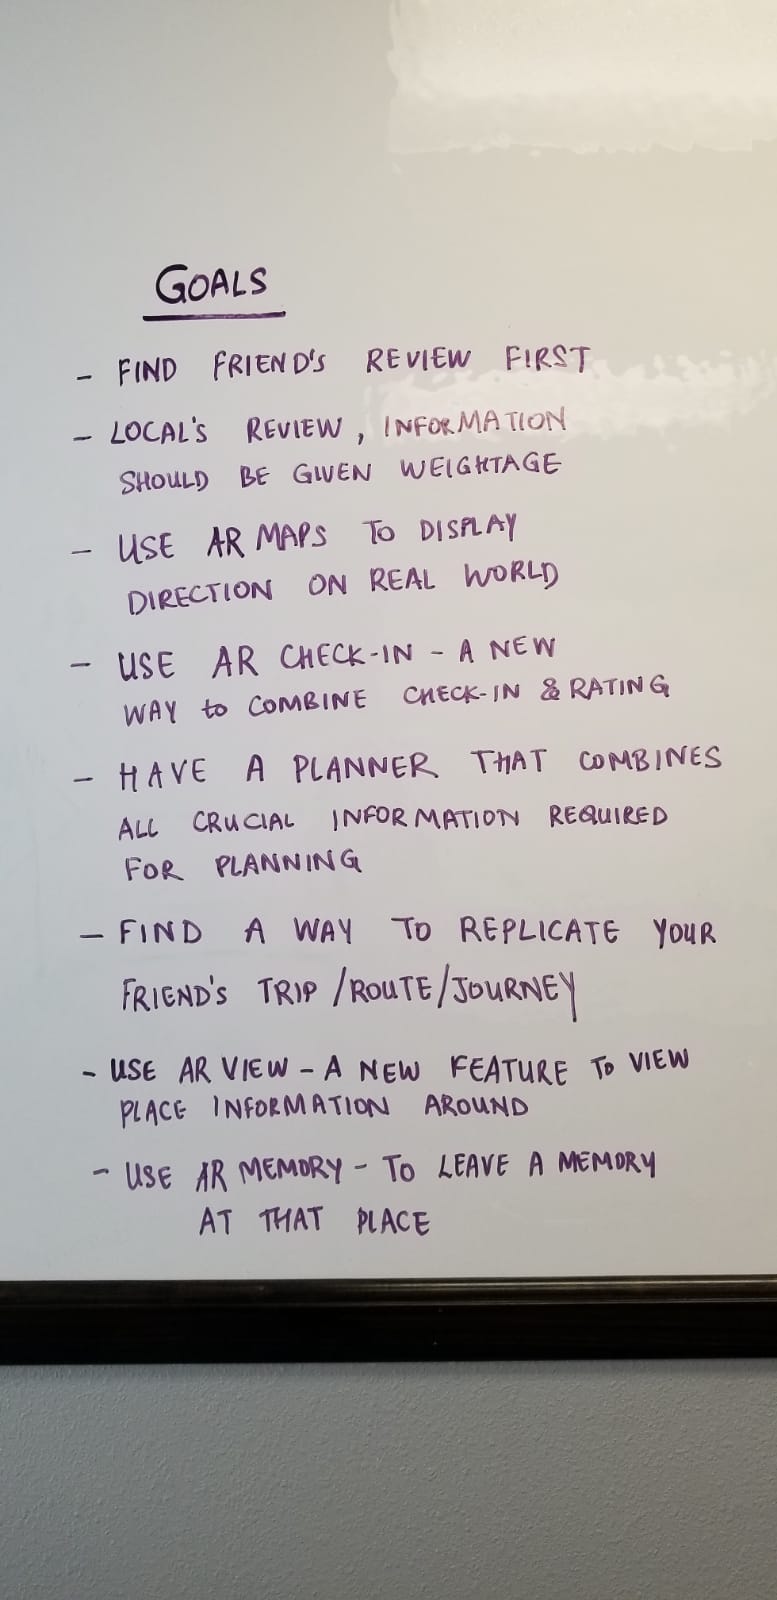 GOALS
- FIND FRIEND'S REVIEW FIRST
- LOCAL'S REVIEW, INFORMATION
SHOULD BE GIVEN WEIGHTAGE
- USE AR MAPS TO DISPLAY
DIRECTION ON REAL WORLD
- USE AR CHECK-IN - A NEW
WAY to COMBINE CHECK-IN & RATING
- HAVE A PLANNER THAT COMBINES
ALL CRUCIAL INFORMATION REQUIRED
FOR PLANNING
- FIND A WAY TO REPLICATE YOUR
FRIEND'S TRIP/ROUTE/JOURNEY
- USE AR VIEW - A NEW FEATURE TO VIEW
PLACE INFORMATION AROUND
- USE AR MEMORY - TO LEAVE A MEMORY
AT THAT PLACE